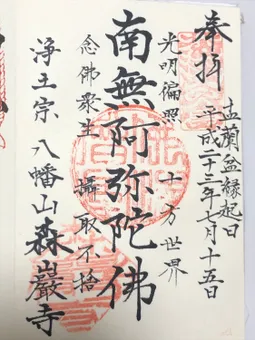 奉拝
盂蘭盆縁起日
平成二十三年七月十五日
光明徧照 十方世界
南無阿弥陀佛
念佛衆生 攝取不捨
浄土宗 八幡山 森巖寺